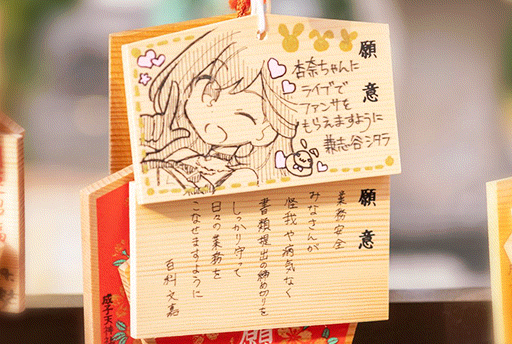 願意
杏奈ちゃんに
ライブで
ファンサを
もらえますように
兼志谷シタラ
願意
業務安全
みなさんが
怪我や病気なく
書類提出の締め切りを
しっかり守って
日々の業務を
こなせますように
百科文嘉
成子天神社
願